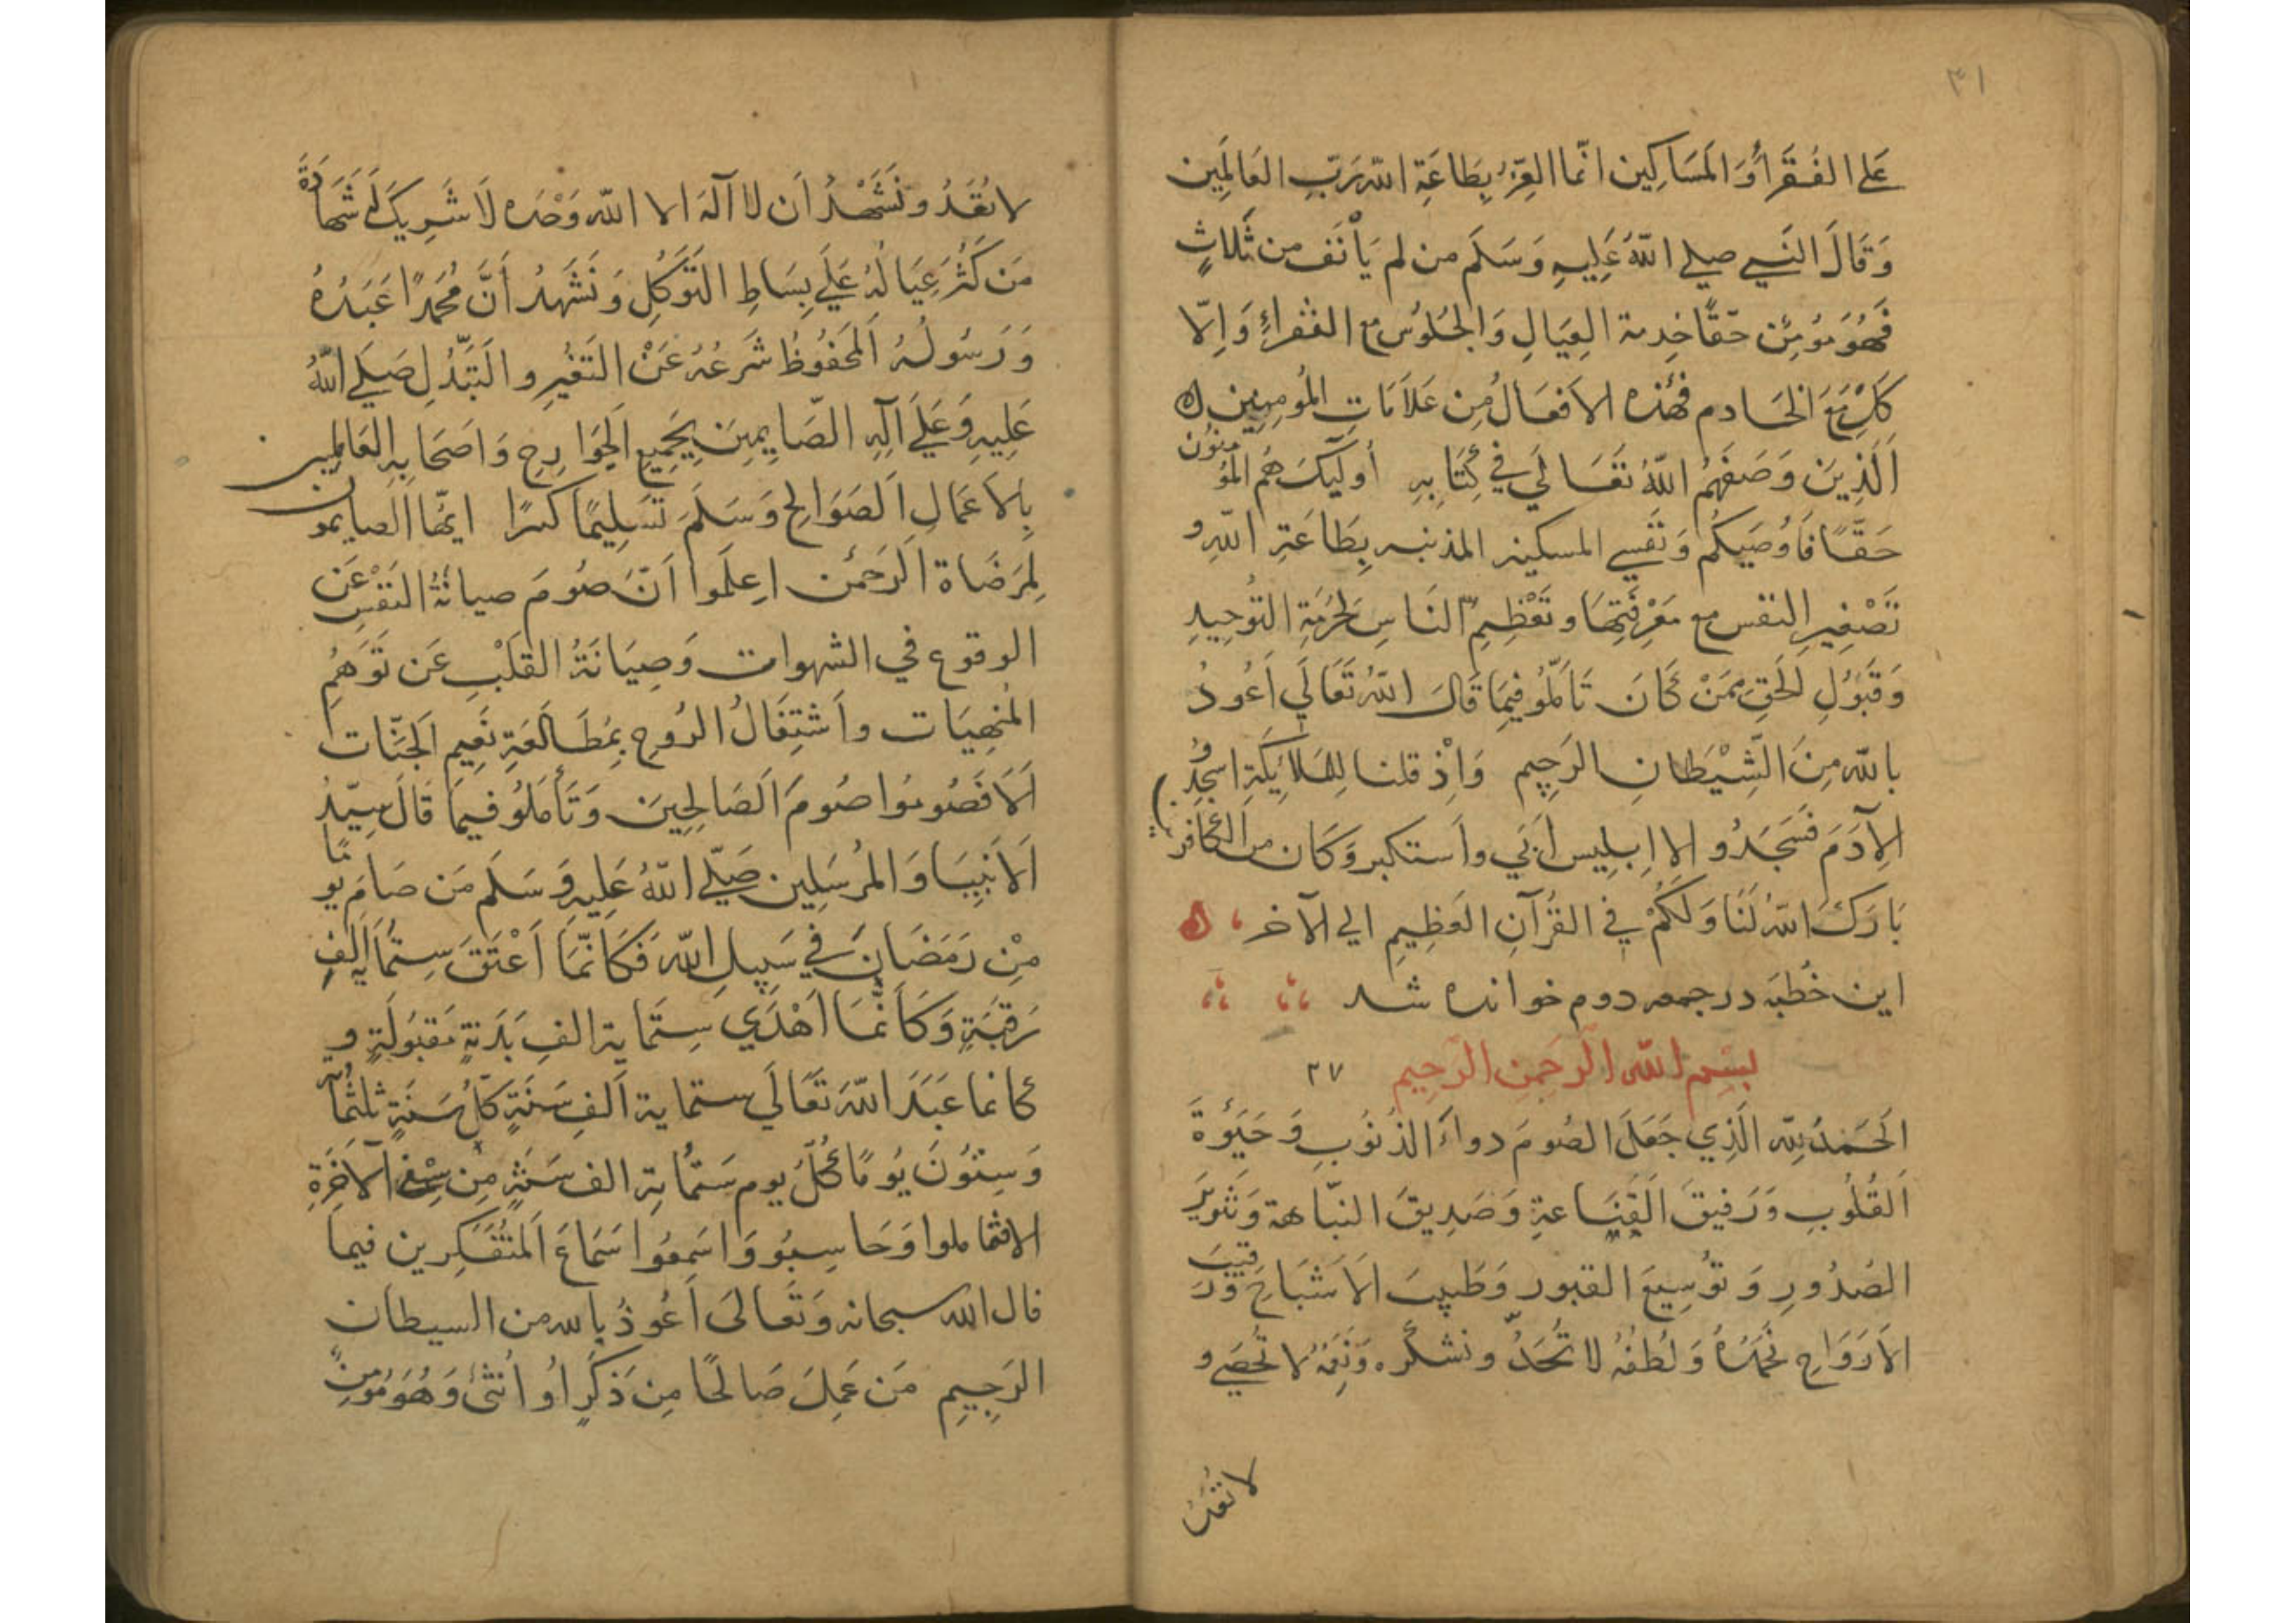 ٣١
عَلي الفُقَرَاؤَ المَسَاكِين انّما العِزُّ بِطَاعَةِ اللّه رَبِّ العَالَمِين
وَقَالَ النَبي صلي اللّهُ عَلِيهِ وَسَلَم من لم يَأْنَف من ثَلَاثٍ
فَهُوَ مُومِنٌ حَقًا خِدمة العِيَالِ وَالجلُوس مع الفُقراءِ وَاِلّا
كلِ مَعَ الخَادم فهٰذه الاَفعَالُ مِن عَلاَمَاتِ المُومِنِين
اَلَذِينَ وَصَفَهُم اللّهُ تَعَالَي في كِتَابِهِ أوليكَ هُم المُومنُون
حَقًّا فَاُوصَيكُم وَنَفسِي المسكينه المذنبه بِطَاعَتِ اللّهِ و
تَصْغِيرِ النفس مع مَعْرِفَتِهَا وتَعْظِيمِ النَاسِ لحُرمَةِ التَوُحِيدِ
وَقَبُولِ الحَقِ مِمَنْ كَانَ تَاَمَّلُو فِيمَا قَالَ اللّهُ تَعَالَي اَعُوذُ
باللّه مِنَ الشّيْطانِ الرَجِيم وَاِذْ قلنا لِلمَلَائِكَةِ اسجُدُو
لِآدَمَ فَسَجَدُو اِلا اِبلِيس اَبَي واَستكبر وَكَان من الكَافر
بَارَكَ اللّهُ لَنَا وَلَكُمْ فِي القُرآنِ العَظِيمِ الي الآخر
اين خُطبَه در جمعه دوم خوانده شد
بسم اللّه الرَحمنِ الرَحِيمِ ٢٧
الَحَمدُ لِلّه الَذِي جَعَلَ الصُومَ دواءَ الذُنُوبِ وَحَيٰوةَ
اَلقُلُوبِ وَرَفيقَ القَنَاعةِ وَصَدِيقَ النبّاهة وَتَنوِيرَ
الصُدُورِ وَتوُسِيعَ القبور وَطَبِيبَ الاَشبَاحَ وَرَقيبَ
الاَروَاحِ نَحمَدُهُ وَلُطفُهُ لا تُحَدُّ ونشكُره وَنِعَمُهُ لا تُحصَي و
لا تُفقَدُ
لا تُفقَدُ ونَشْهَدُ اَن لا اَلَهَ الا اللّه وَحْدَه لَا شَرِيكَ لَهُ شَهَادَةَ
مَن كَثُرَ عِيَالُهُ عَلَي بِسَاطِ التَوَكُلِ وَنَشَهدُ اَنَّ مُحَمدًا عَبدُهُ
وَرَسُولُهُ اَلمَحفُوظُ شَرعُهُ عَنْ التَغيُرِ والتَبَدُلِ صَلَي اللّهُ
عَلِيهِ وَعَلَي آلِهِ الصّايمِينَ بِجَمِيعِ الجَوَارِحِ وَاَصحَابِهِ العَالمِين
بِالاَعمَالِ الصَوَالحِ وَسَلَمَ تَسَلِيمًا كثيرًا ايهّا الصايمون
لِمَرضَاة الرَحمٰن اعِلَموا اَنَ صَومَ صيانَةُ النَفسِ عَن
الوقوع في الشهوات وَصِيَانَةُ القَلْبِ عَن تَوَهُمِ
المُنهِيَات واَشتِغَالُ الرُوحِ بِمُطَالَعَةِ نَعِيمِ الجَنّات
اَلَا فَصُومُوا صُومَ اَلصَالِحِينَ وَتَأَمَلُو فيمَا قَالَ سيّدُ
اَلاَنبِيَا وَالمُرسَلِين صَلّي اللّهُ عَلِيهِ وَسَلَم مَن صَامَ يومًا
مِنْ رَمَضَانَ في سَبِيلِ اللّه فَكَانّمَا اَعْتَقَ سِتُمَايَة اَلفِ
رَقَبَةٍ وَكَاَنَّمَا اَهْدَي سِتُمَاية الفِ بَدَنَةٍ مَقبُولَةٍ و
كانما عَبَدَ اللّهَ تَعَالَي ستماية اَلفِ سَنَةٍ كلُ سَنَةٍ ثلثُمَاية
وَسِتُونَ يَومًا كُلُ يوم سَتُماية الف سَنَةٍ مِن سِنِي الآخَرَةِ
الا فتاملوا وَحَاسِبُو وَاسَمِعُوا سَمَاعَ اَلمتُفَكِرين فيما
قال الله سبحانه وَتَعالى اَعُوذُ بالله من الشيطان
الرَجِيمِ مَن عَمِلَ صَالحًا مِن ذَكَرٍ اَو اُنثى وَهُوَ مُومِنٌ